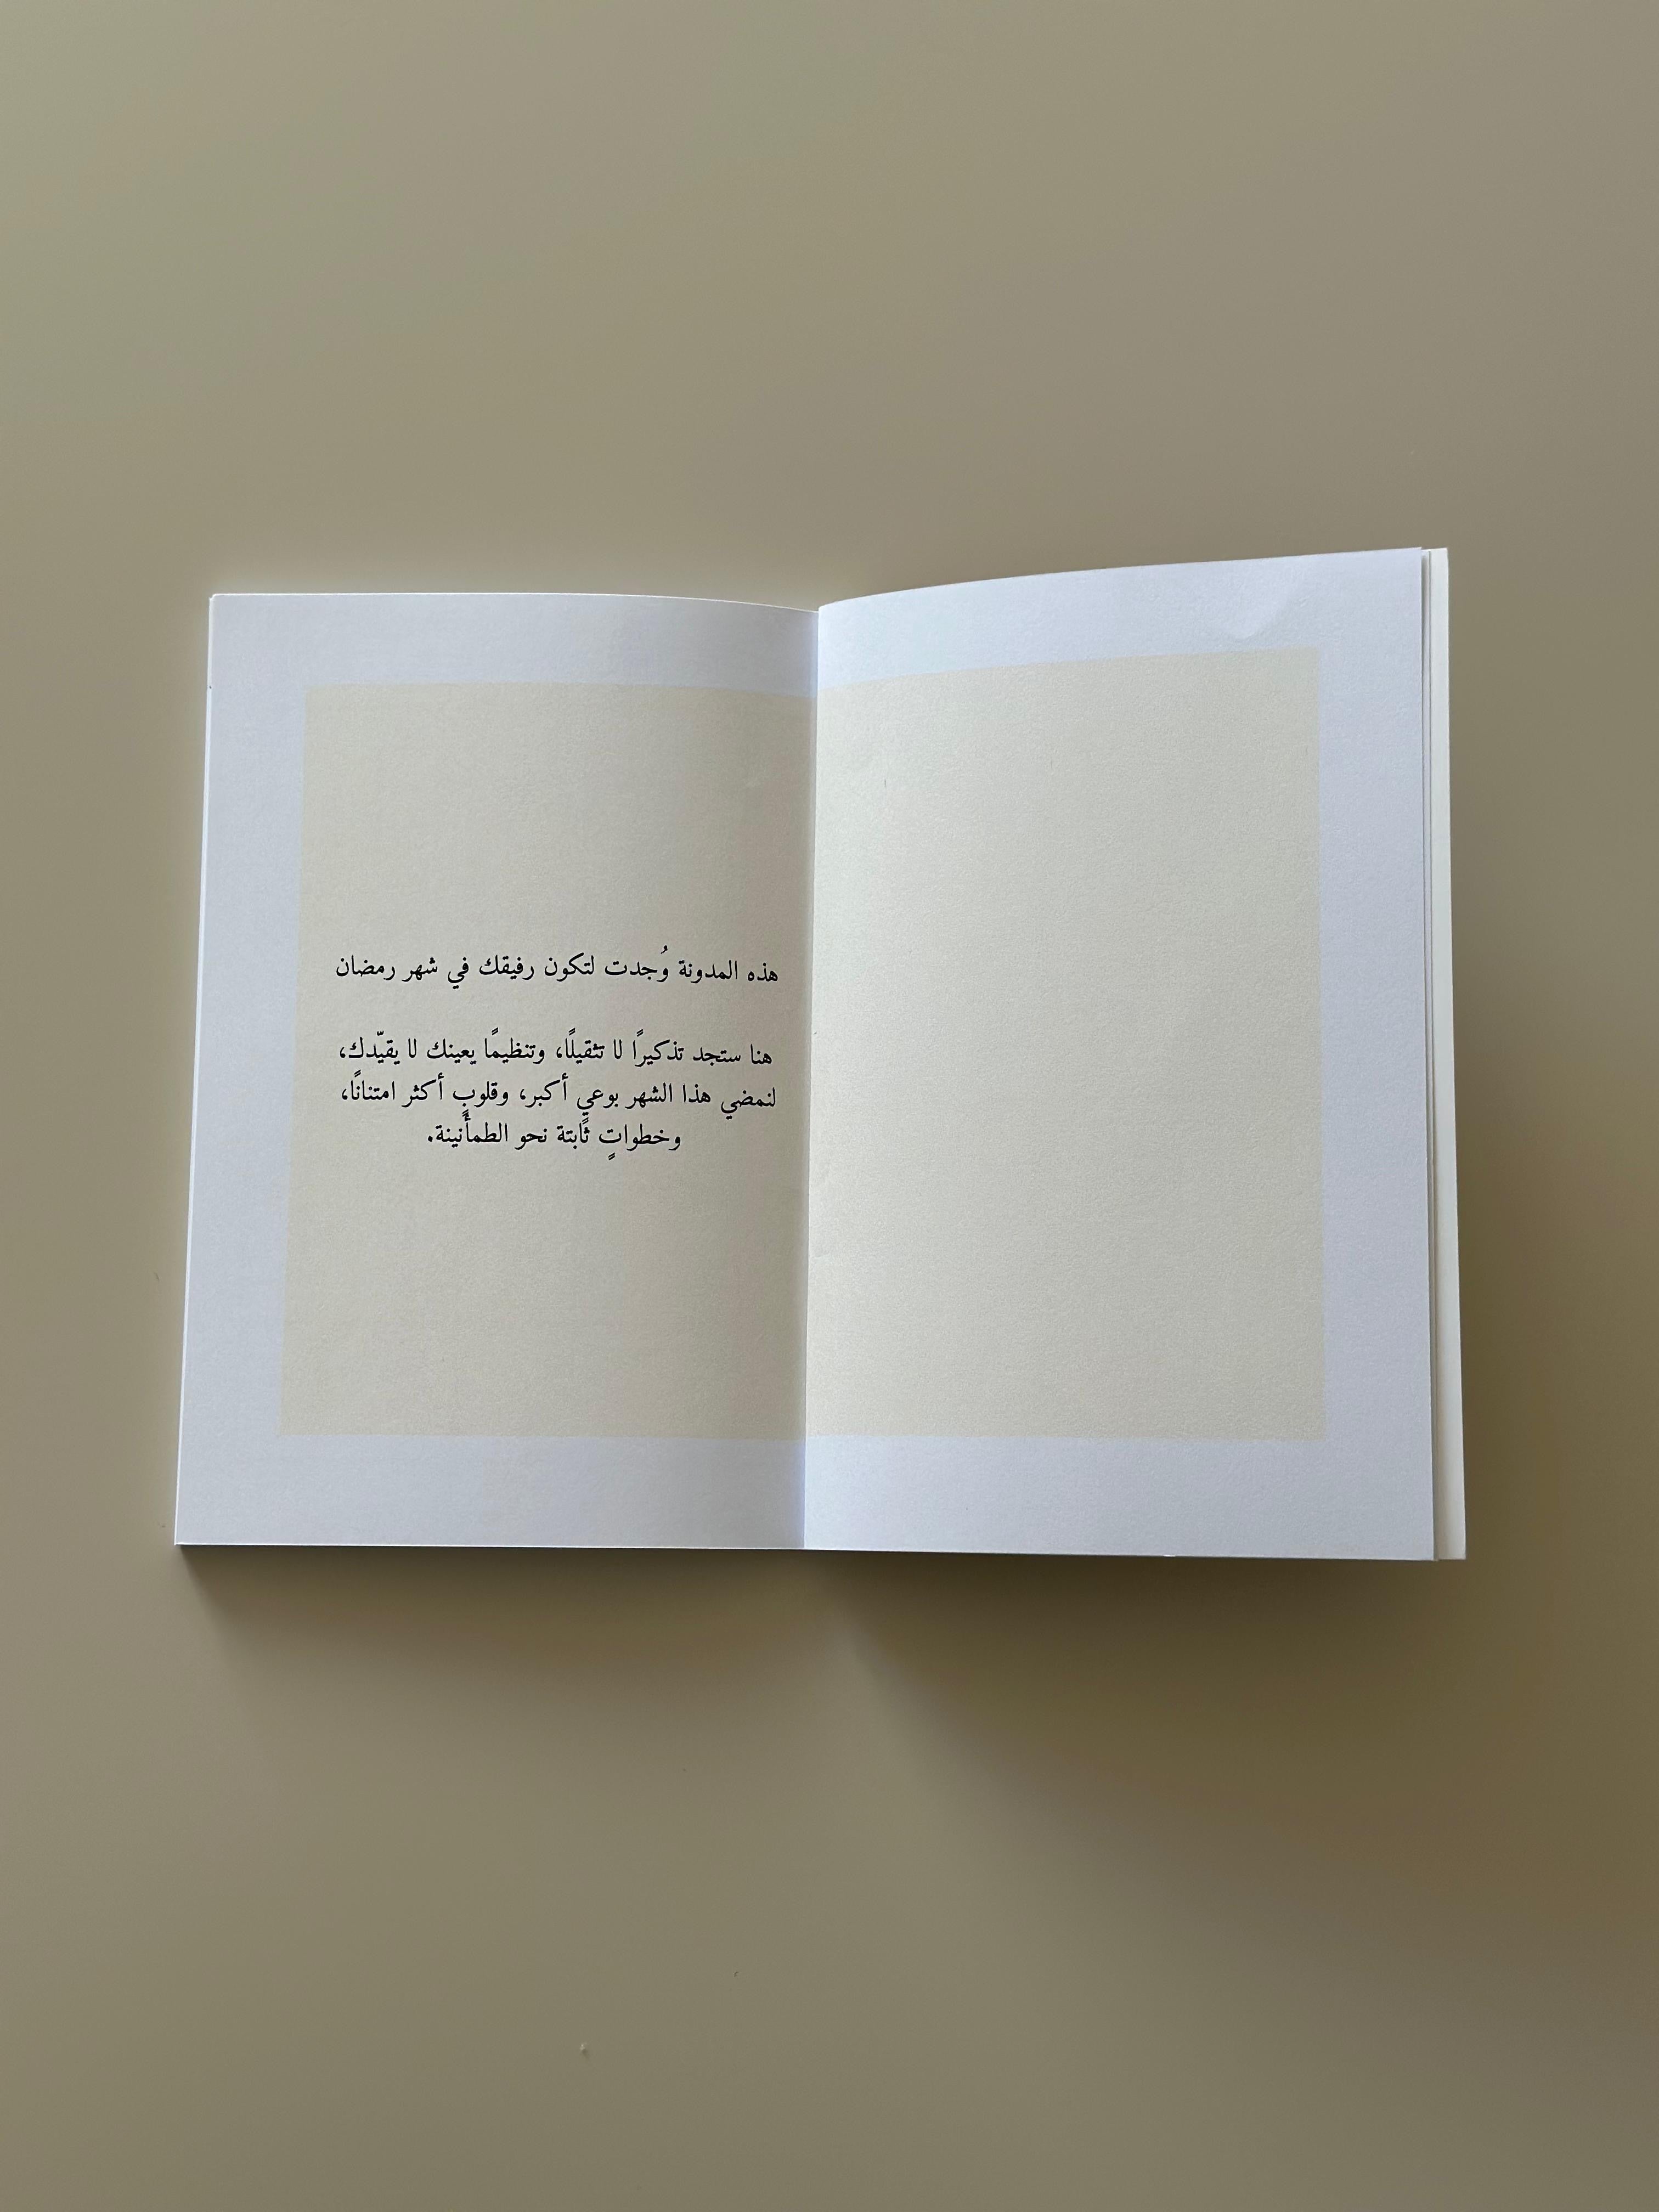 هذه المدونة وُجدت لتكون رفيقك في شهر رمضان
هنا ستجد تذكيرًا لا تثقيلًا، وتنظيمًا يعينك لا يقيّدك،
لنمضي هذا الشهر بوعيٍ أكبر، وقلوبٍ أكثر امتنانًا،
وخطواتٍ ثابتة نحو الطمأنينة.